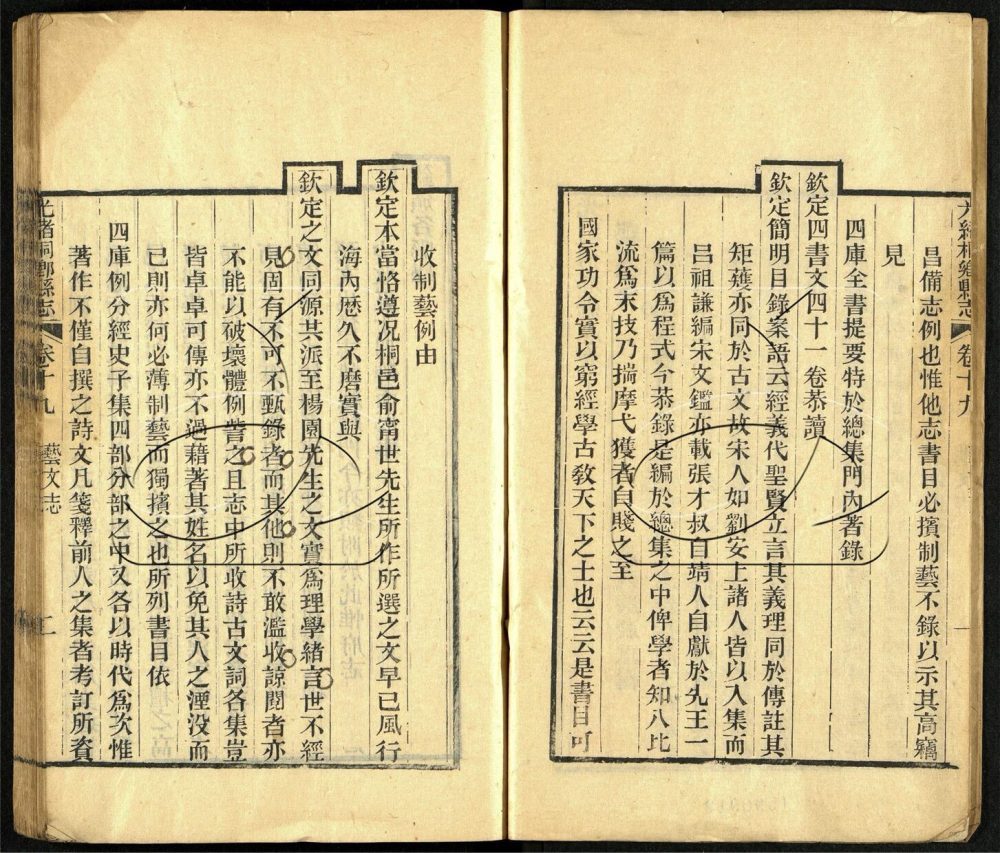 光緒桐鄉縣志
卷十九
昌備志例也惟他志書目必擯制藝不錄以示其高竊
見
四庫全書提要特於總集門內著錄
欽定四書文四十一卷恭讀
欽定簡明目錄案語云經義代聖賢立言其義理同於傳註其
矩矱亦同於古文故宋人如劉安上諸人皆以入集而
呂祖謙編宋文鑑亦載張才叔自靖人自獻於先王一
篇以爲程式今恭錄是編於總集之中俾學者知八比
流爲末技乃揣摩弋獲者自賤之至
國家功令實以窮經學古敎天下之士也云云是書目可
收制藝例由
欽定本當恪遵况桐邑俞甯世先生所作所選之文早已風行
海內歷久不磨實與
欽定之文同源共派至楊園先生之文實爲理學緒言世不經
見固有不可不甄錄者而其他則不敢濫收諒閱者亦
不能以破壞體例訾之且志中所收詩古文詞各集豈
皆卓卓可傳亦不過藉著其姓名以免其人之湮没而
已則亦何必薄制藝而獨擯之也所列書目依
四庫例分經史子集四部分部之中又各以時代爲次惟
著作不僅自撰之詩文凡箋釋前人之集者考訂所資
光緒桐鄉縣志
卷十九
藝文志
二